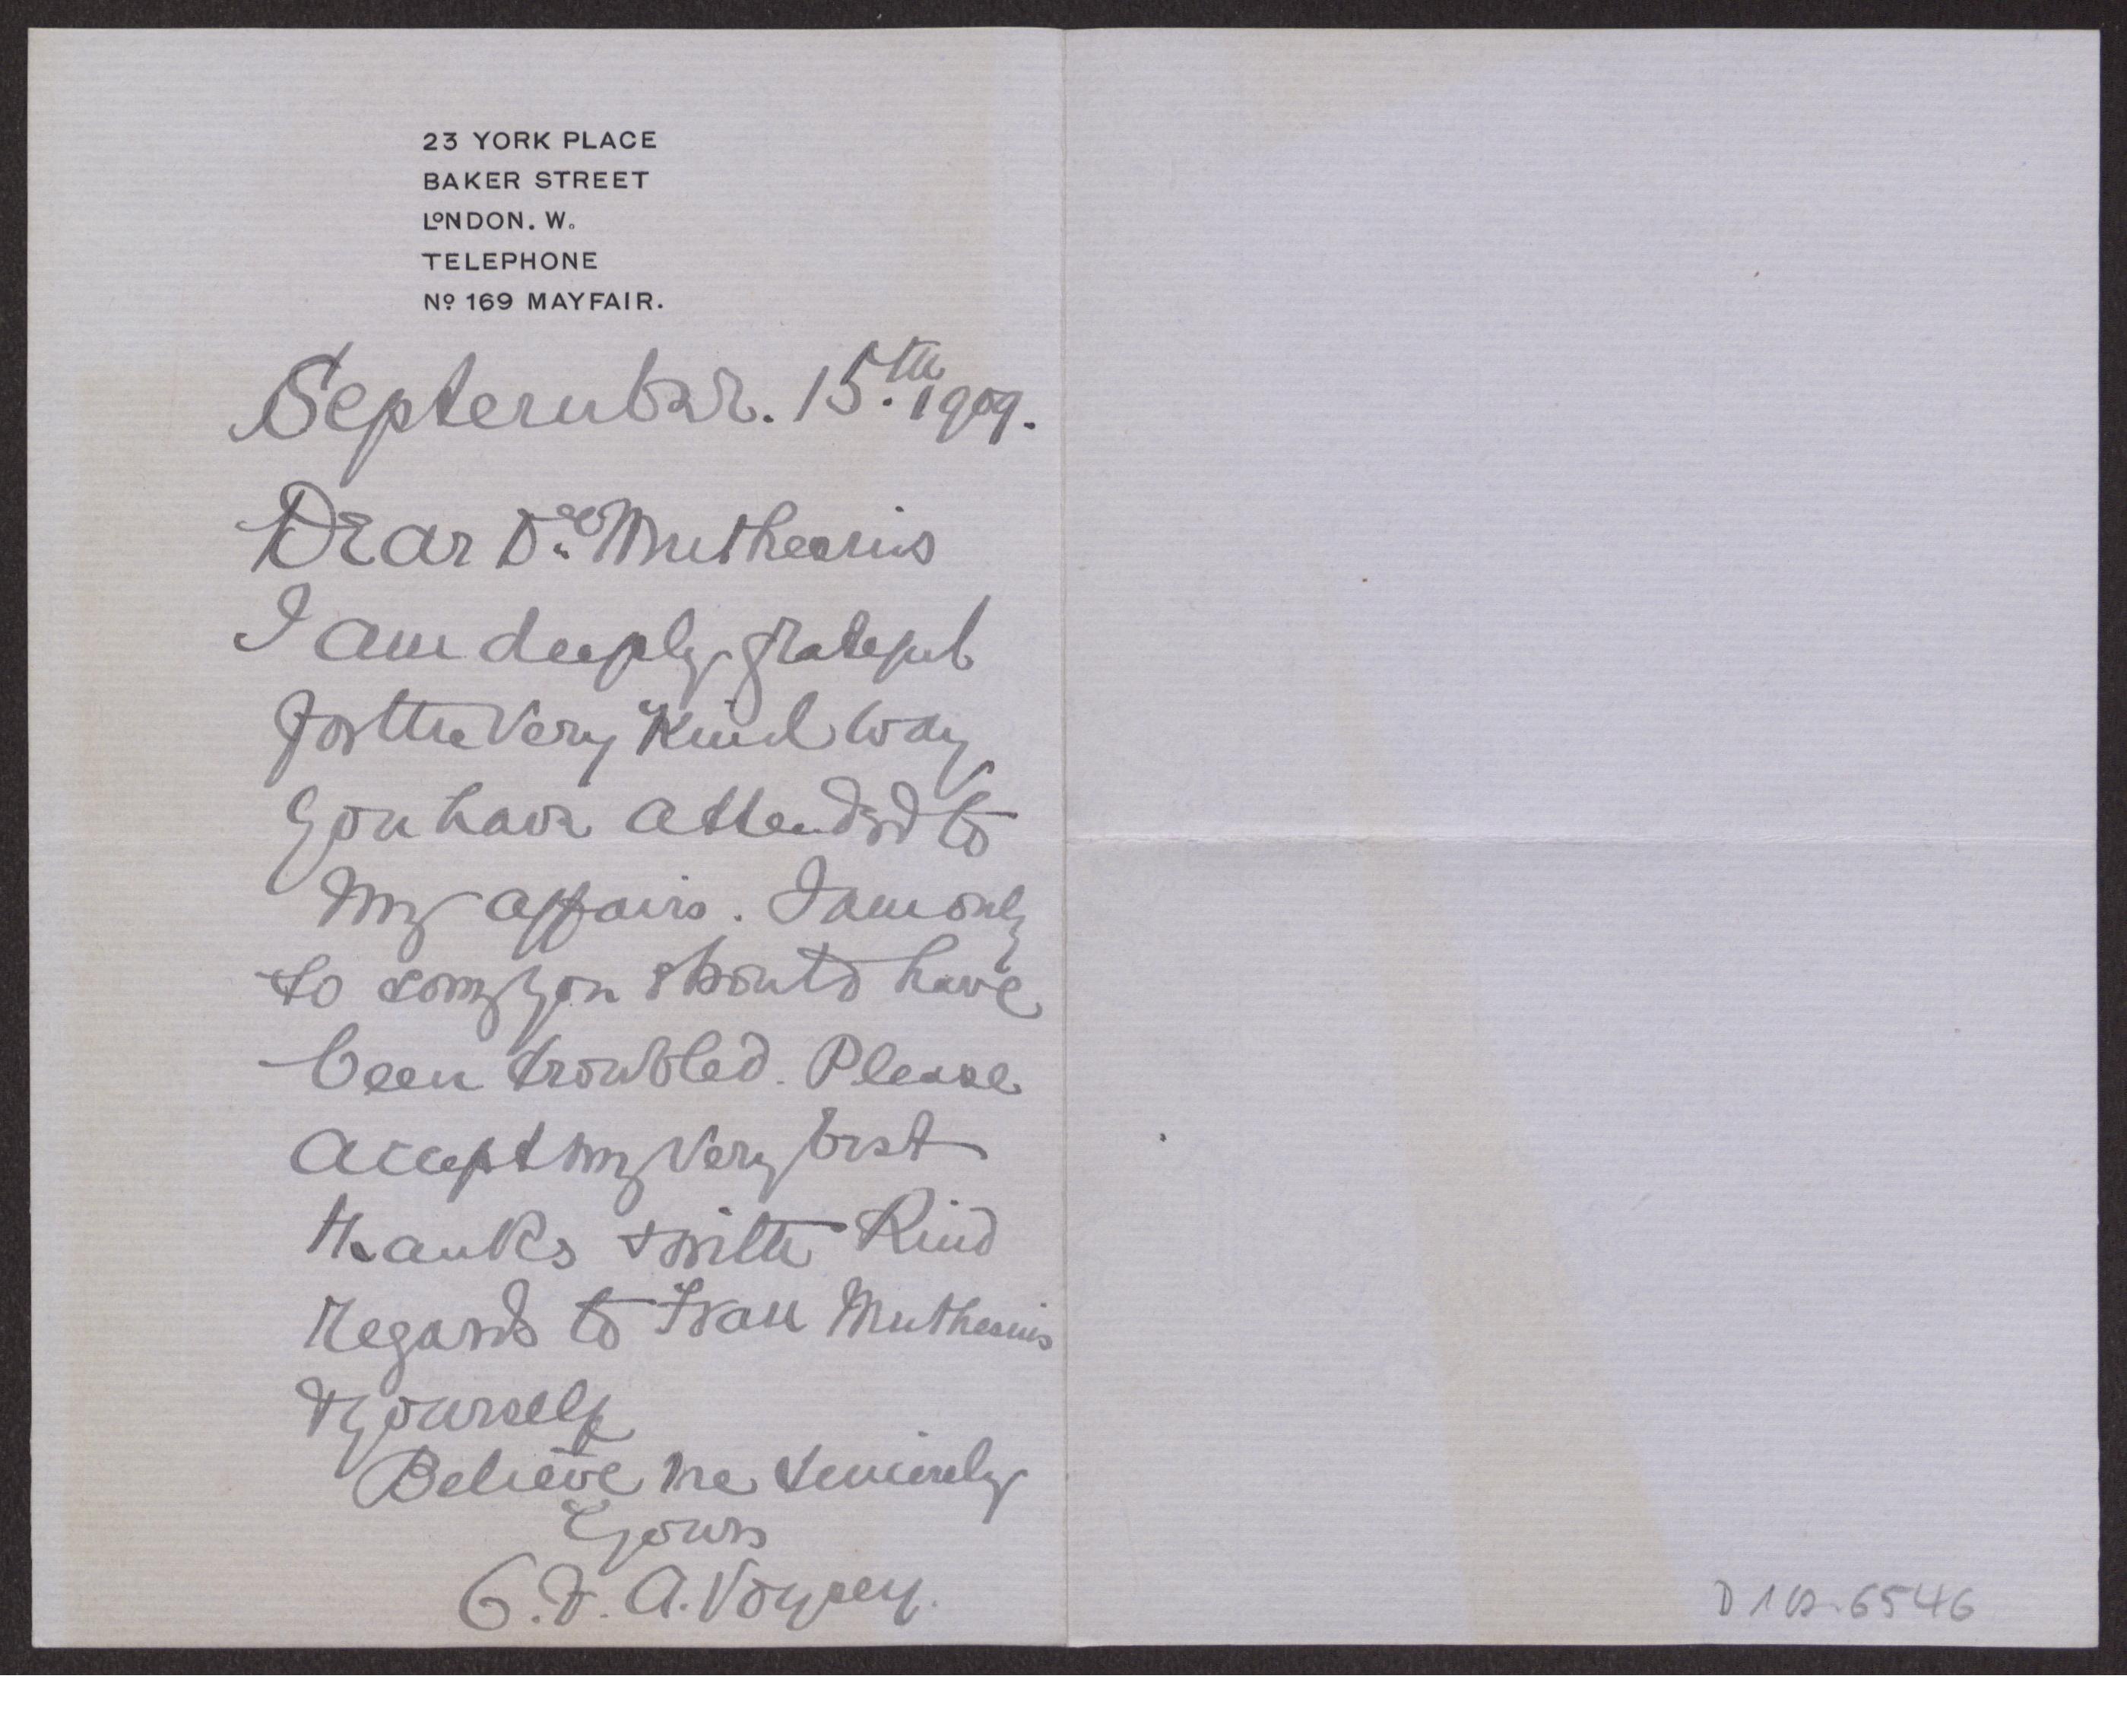 23 YORK PLACE
BAKER STREET
LONDON. W.
TELEPHONE
Nº 169 MAYFAIR.
September. 15.th 1909.
Dear Dr. Muthesius
I am deeply grateful
for the very kind way
you have attended to
my affairs. I am only
to sorry you should have
been troubled. Please
accept my very best
thanks & with kind
regards to Frau Muthesius
& yourself
Believe me sincerely
Yours
C. F. A. Voysey.
D 102-6546